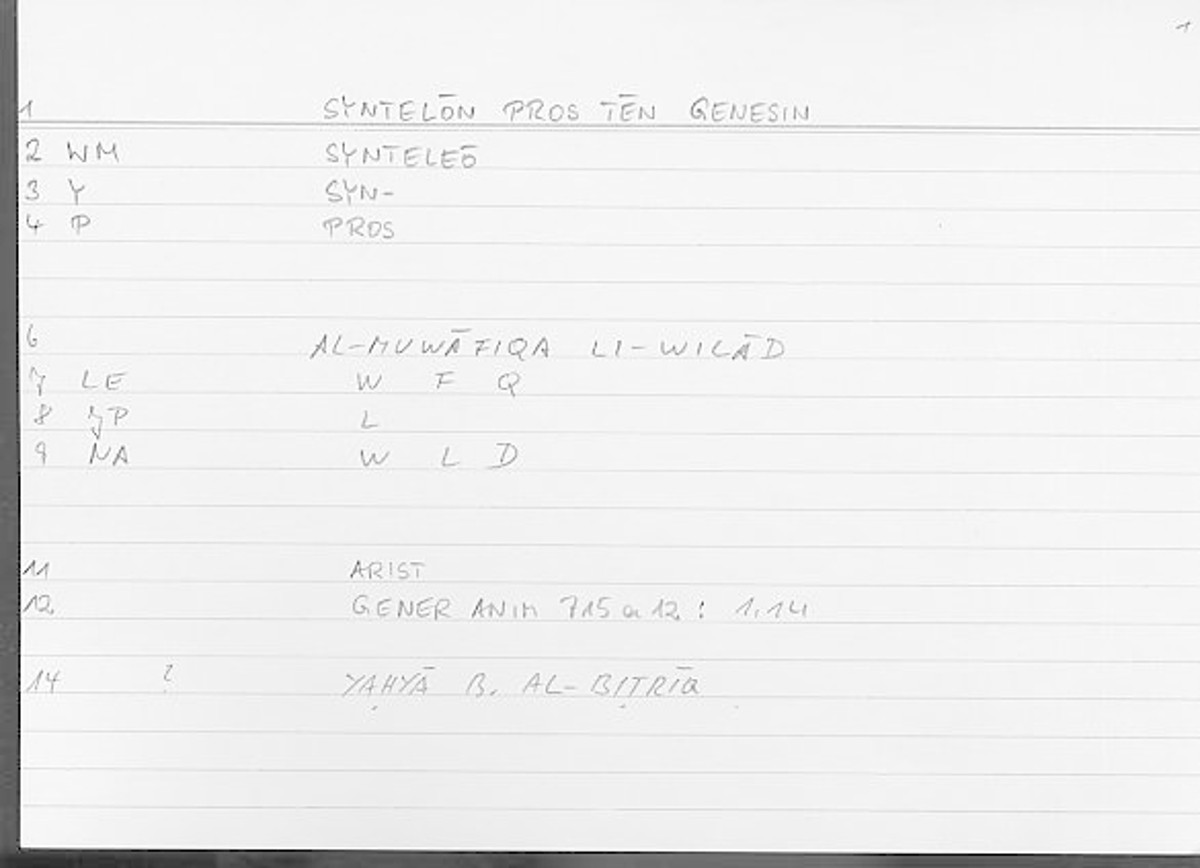 1
1 SYNTELŌN PROS TĒN GENESIN
2 WM SYNTELEŌ
3 Y SYN-
4 P PROS
6 AL-MUWĀFIQA LI-WILĀD
7 LE W F Q
8 JP L
9 NA W L D
11 ARIST
12 GENER ANIM 715 a 12 : 1.14
14 ? YAḤYĀ B. AL-BIṬRĪQ